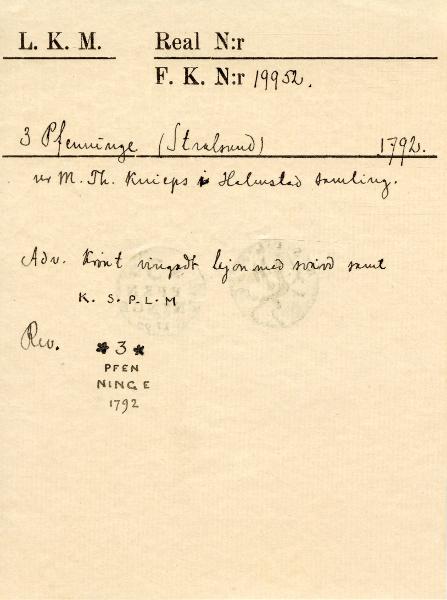 L. K. M. Real N:r
F. K. N:r 19952.
3 Pfenninge (Stralsund) 1792.
ur M. Th. Knieps i Halmstad samling.
Adv. Krönt vingadt lejon med svärd samt
K. S. P. L. M
Rev. * 3 *
PFEN
NINGE
1792